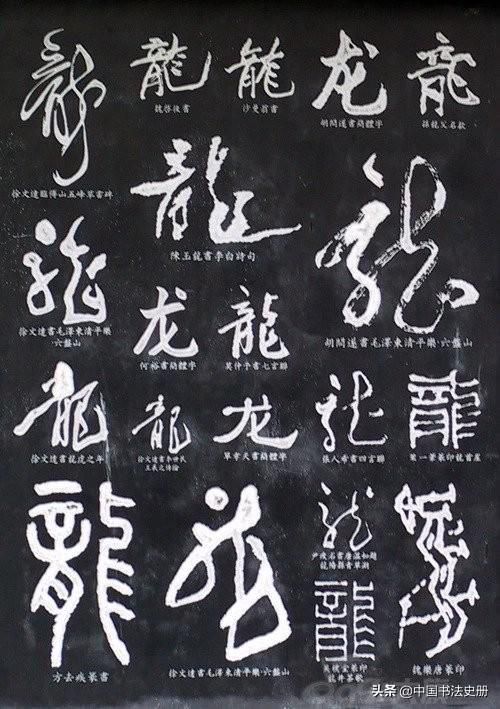 龍 龍 龍 龙 龍
徐文達臨傅山五峰草書碑
魏啓後書
沙曼翁書
胡問遂書簡體字
孫龍父名款
龍
陳玉龍書李白詩句
龍
徐文達書毛澤東清平樂·六盤山
龍
胡問遂書毛澤東清平樂·六盤山
龙 龍
何裕書簡體字
莫仲予書七言聯
龍 龍 龙 龍 龍
徐文達書龍虎之年
徐文達書李世民
王羲之傳論
單孝天書簡體字
張人希書四言聯
龍
方去疾篆書
龍
徐文達書毛澤東清平樂·六盤山
龍
龍陽縣青草湖
龍
龍
魏樂唐篆印
头条 @中国书法史册